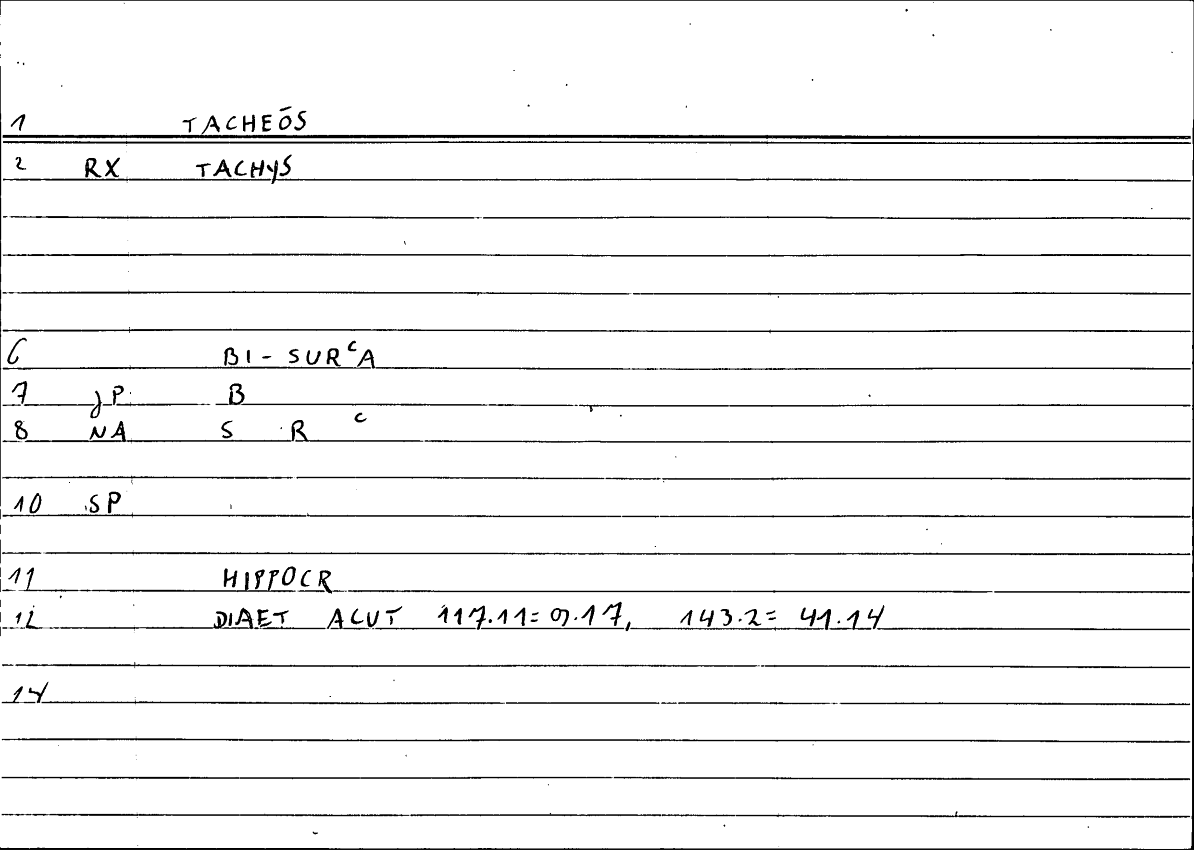 1 TACHEŌS
2 RX TACHYS
6 BI - SURᶜA
7 JP B
8 NA S R ᶜ
10 SP
11 HIPPOCR
12 DIAET ACUT 117.11= 9.17, 143.2= 41.14
14